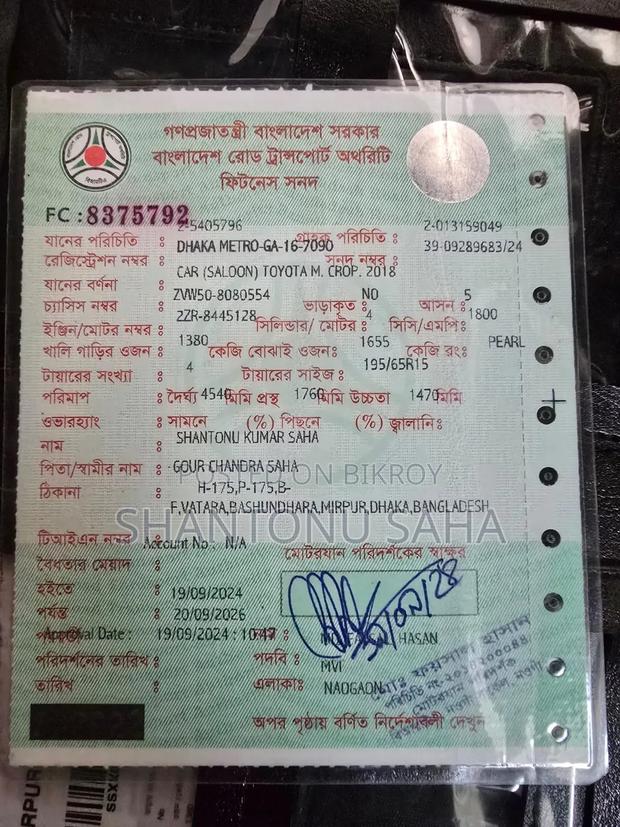 গণপ্রজাতন্ত্রী বাংলাদেশ সরকার
বাংলাদেশ রোড ট্রান্সপোর্ট অথরিটি
ফিটনেস সনদ
FC : 8375792
2-5405796 2-013159049
যানের পরিচিতি : গ্রাহক পরিচিতি :
DHAKA METRO-GA-16-7090 39-09289683/24
রেজিস্ট্রেশন নম্বর : সনদ নম্বর :
CAR (SALOON) TOYOTA M. CROP. 2018
যানের বর্ণনা :
ZVW50-8080554 NO 5
চ্যাসিস নম্বর : ভাড়াকৃত : আসন :
2ZR-8445128 4 1800
ইঞ্জিন/মোটর নম্বর : সিলিন্ডার/ মোটর : সিসি/এমপি:
1380 1655 PEARL
খালি গাড়ির ওজন : কেজি বোঝাই ওজন: কেজি রং:
4 195/65R15
টায়ারের সংখ্যা : টায়ারের সাইজ :
পরিমাপ : দৈর্ঘ্য 4540 মিমি প্রস্থ 1760 মিমি উচ্চতা 1470 মিমি
ওভারহ্যাং : সামনে (%) পিছনে (%) জ্বালানি:
SHANTONU KUMAR SAHA
নাম :
পিতা/স্বামীর নাম : GOUR CHANDRA SAHA
ঠিকানা : H-175,P-175,B-
F,VATARA,BASHUNDHARA,MIRPUR,DHAKA,BANGLADESH
ON BIKROY
SHANTONU SAHA
টিআইএন নম্বর : Account No : N/A
মোটরযান পরিদর্শকের স্বাক্ষর
বৈধতার মেয়াদ :
হইতে : 19/09/2024
পর্যন্ত : 20/09/2026
Approval Date : 19/09/2024 : HASAN
পরিদর্শনের তারিখ : পদবি : MVI
তারিখ : এলাকা: NAOGAON
মোঃ ফয়সাল হাসান
মোটরযান পরিদর্শক
অপর পৃষ্ঠায় বর্ণিত নির্দেশাবলী দেখুন